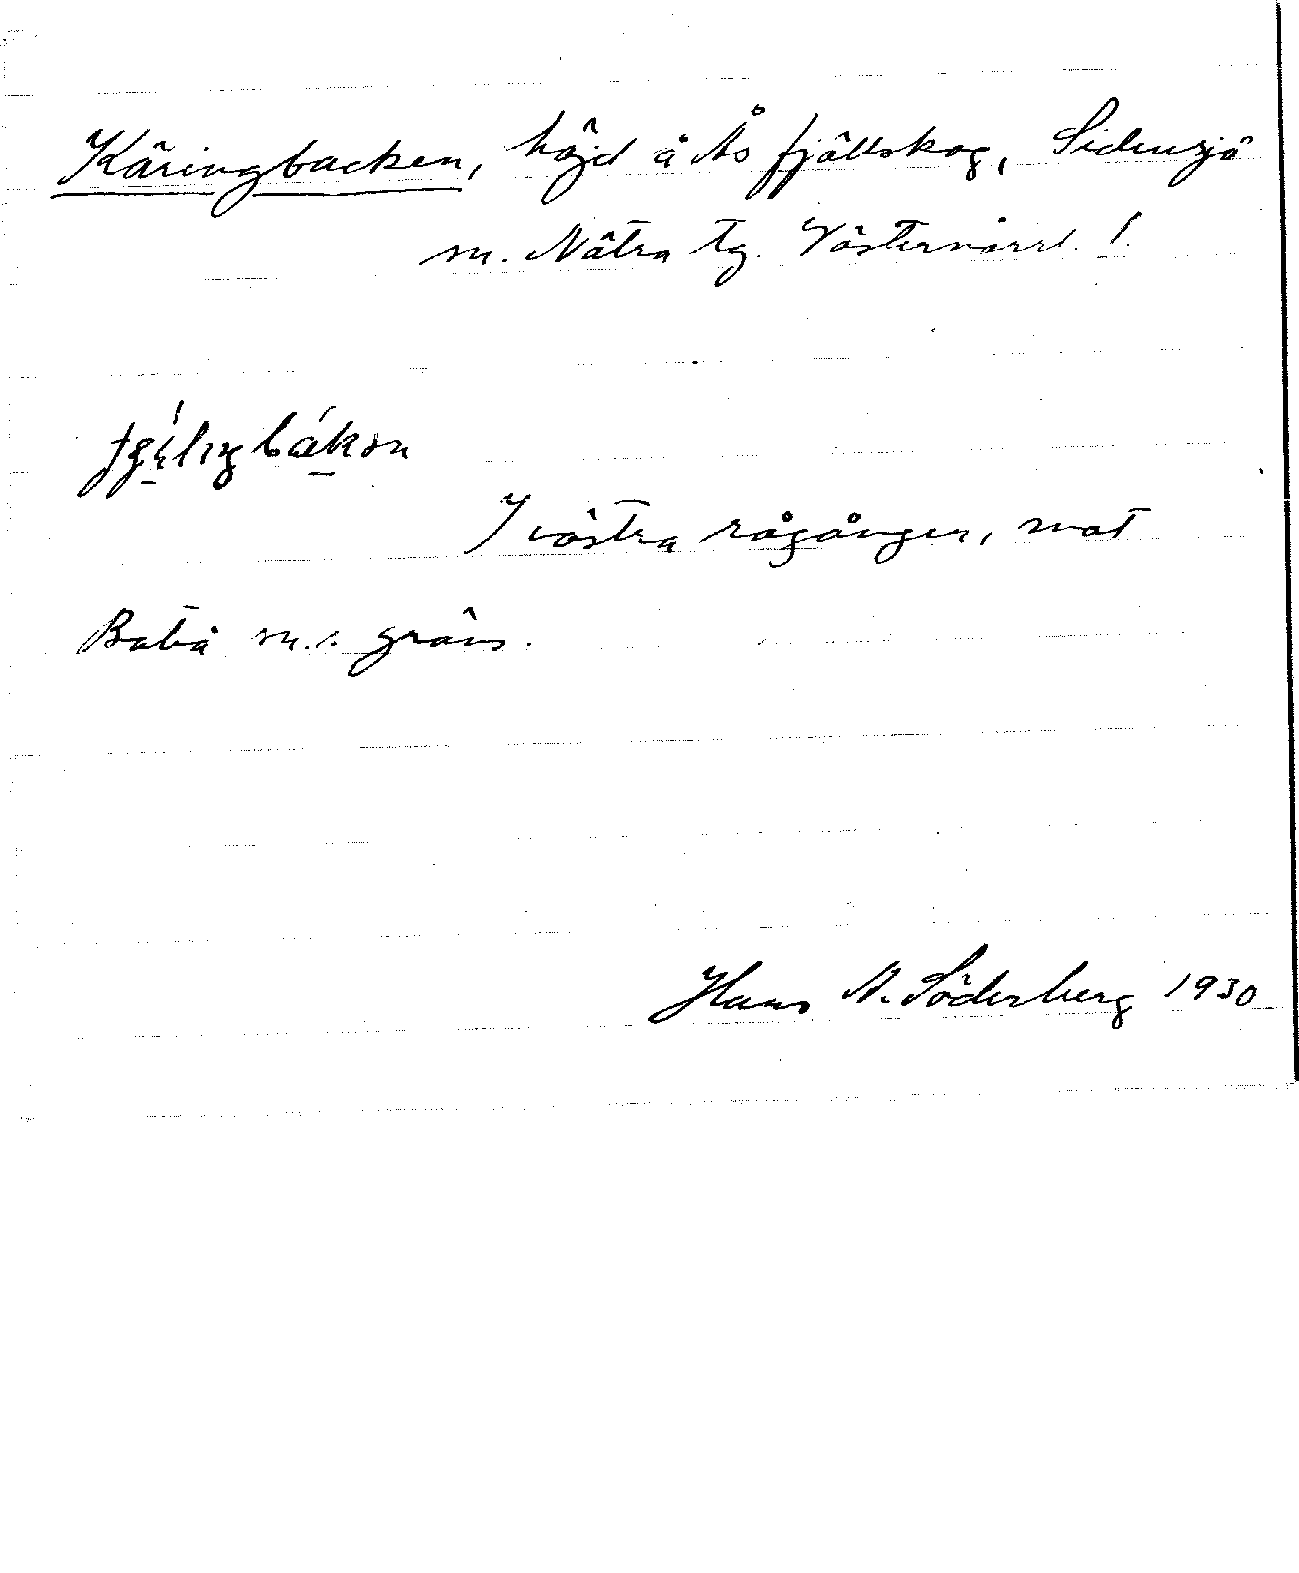 Käringbacken, höjd å Ås fjällskog, Sidensjö
sn. Nätra tg. Västernorrl. l.
I västra rågången, mot
s. gräns.
Hans A. Söderberg 1930